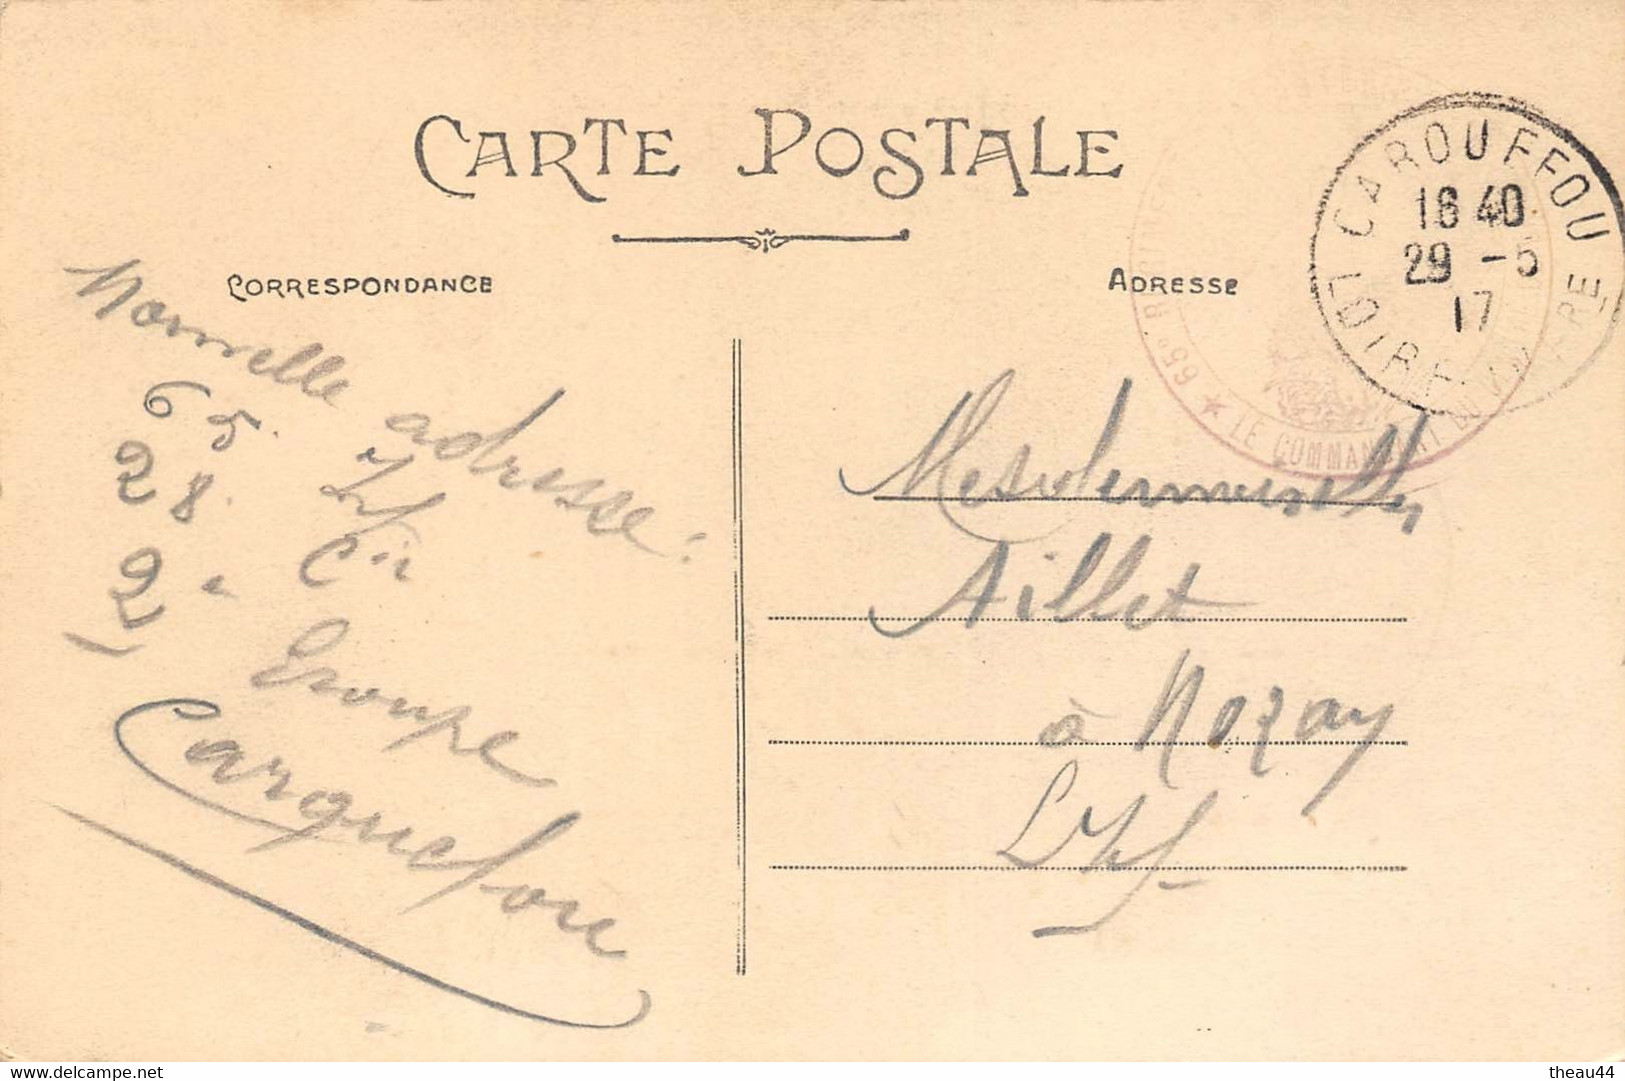 CARTE POSTALE
CORRESPONDANCE
ADRESSE
CAROUFFOU
16 40
29 - 5
17
LOIRE
RE
★ 65e
LE COMMANDANT DU
Nouvelle adresse :
65. Inf
28. Cie
2e Groupe
Carquefou
Mesdemoiselles
Aillet
à Nozay
L. Inf
www.delcampe.net
theau44